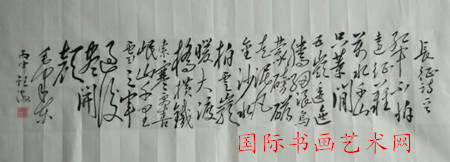 长征诗之一
红军不怕
远征难
万水千山
只等闲
五岭逶迤
腾细浪乌
蒙磅礴
走泥丸
金沙水
拍云崖
暖大渡
桥横铁
索寒更喜
岷山千里
雪三军
过后
尽开
颜
毛泽东
丙申
国际书画艺术网